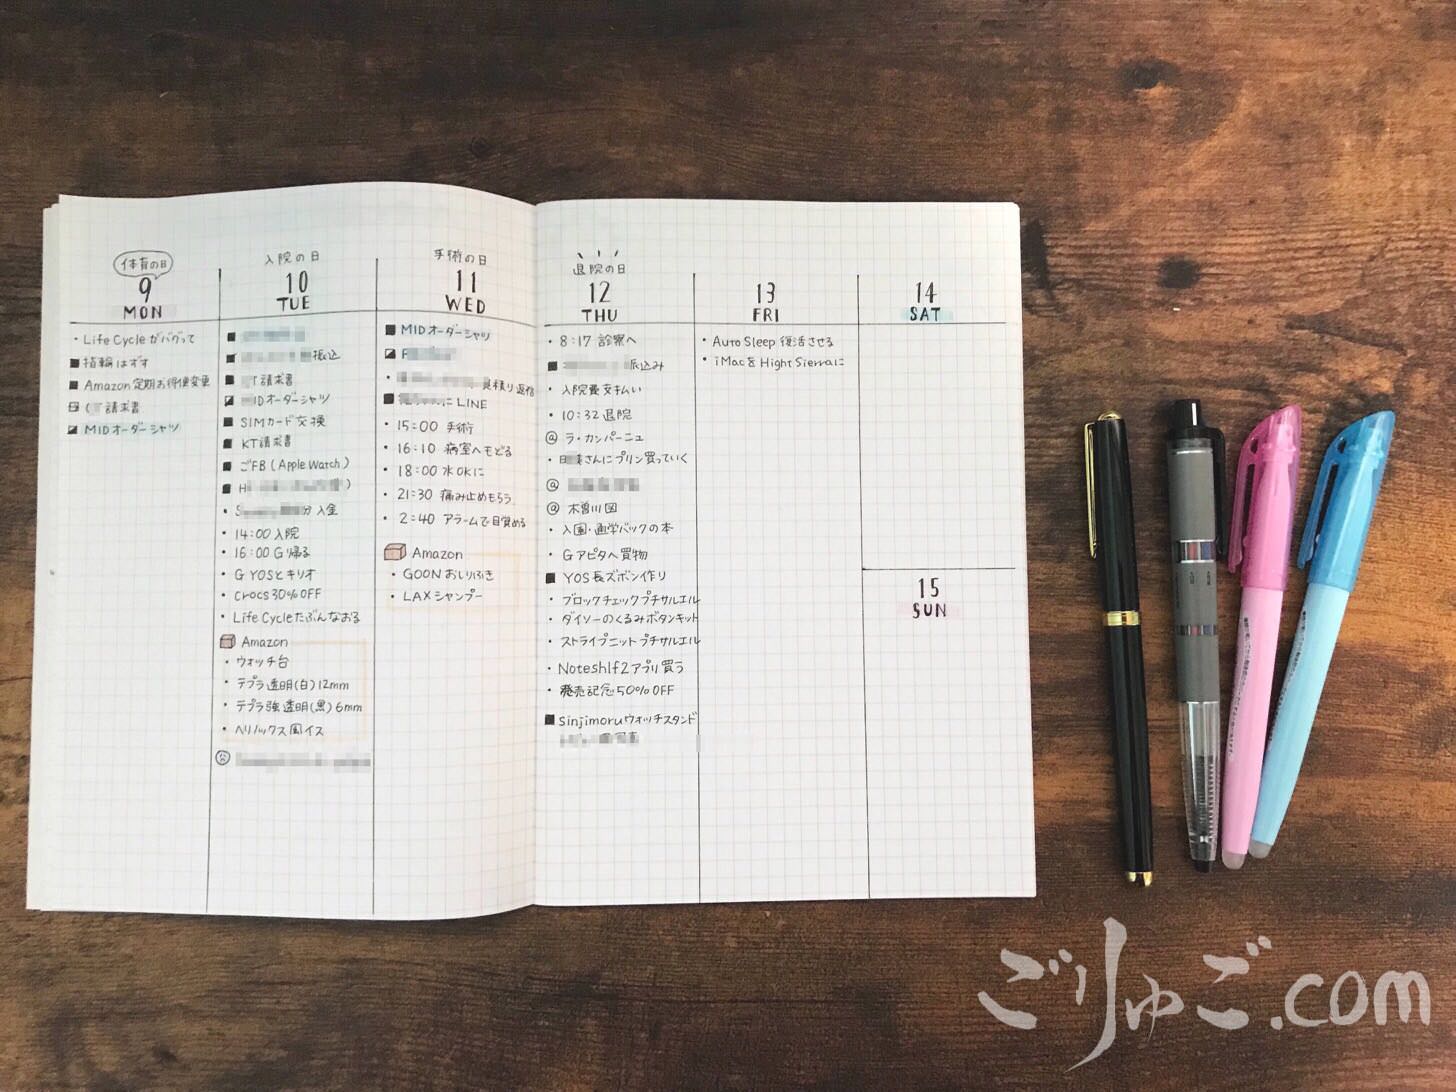 体育の日
9
MON
・Life Cycleがバグって
指輪はずす
Amazon定期お得便変更
請求書
MIDオーダーシャツ
入院の日
10
TUE
振込
T請求書
IDオーダーシャツ
SIMカード交換
KT請求書
ごFB(Apple Watch)
H
)
・S
分入金
・14:00入院
・16:00 G帰る
・G YOSとキリオ
・crocs30%OFF
・Life Cycleたぶんなおる
Amazon
・ウォッチ台
・テプラ透明(白)12mm
・テプラ強透明(黒)6mm
・ヘリノックス風イス
手術の日
11
WED
MIDオーダーシャツ
見積り返信
にLINE
・15:00 手術
・16:10 病室へもどる
・18:00 水OKに
・21:30 痛み止めもらう
・2:40 アラームで目覚める
Amazon
・GOONおしりふき
・LAXシャンプー
退院の日
12
THU
・8:17 診察へ
振込み
・入院費支払い
・10:32 退院
@ラ・カンパーニュ
さんにプリン買っていく
@
@木曽川図
・入園・通学バックの本
・Gアピタへ買物
YOS長ズボン作り
・ブロックチェックプチサルエル
・ダイソーのくるみボタンキット
・ストライプニットプチサルエル
・Noteshlf2アプリ買う
・発売記念50%OFF
Sinjimoruウォッチスタンド
写真
13
FRI
・Auto Sleep 復活させる
・iMacをHight Sierraに
14
SAT
15
SUN
ごりゅご.com